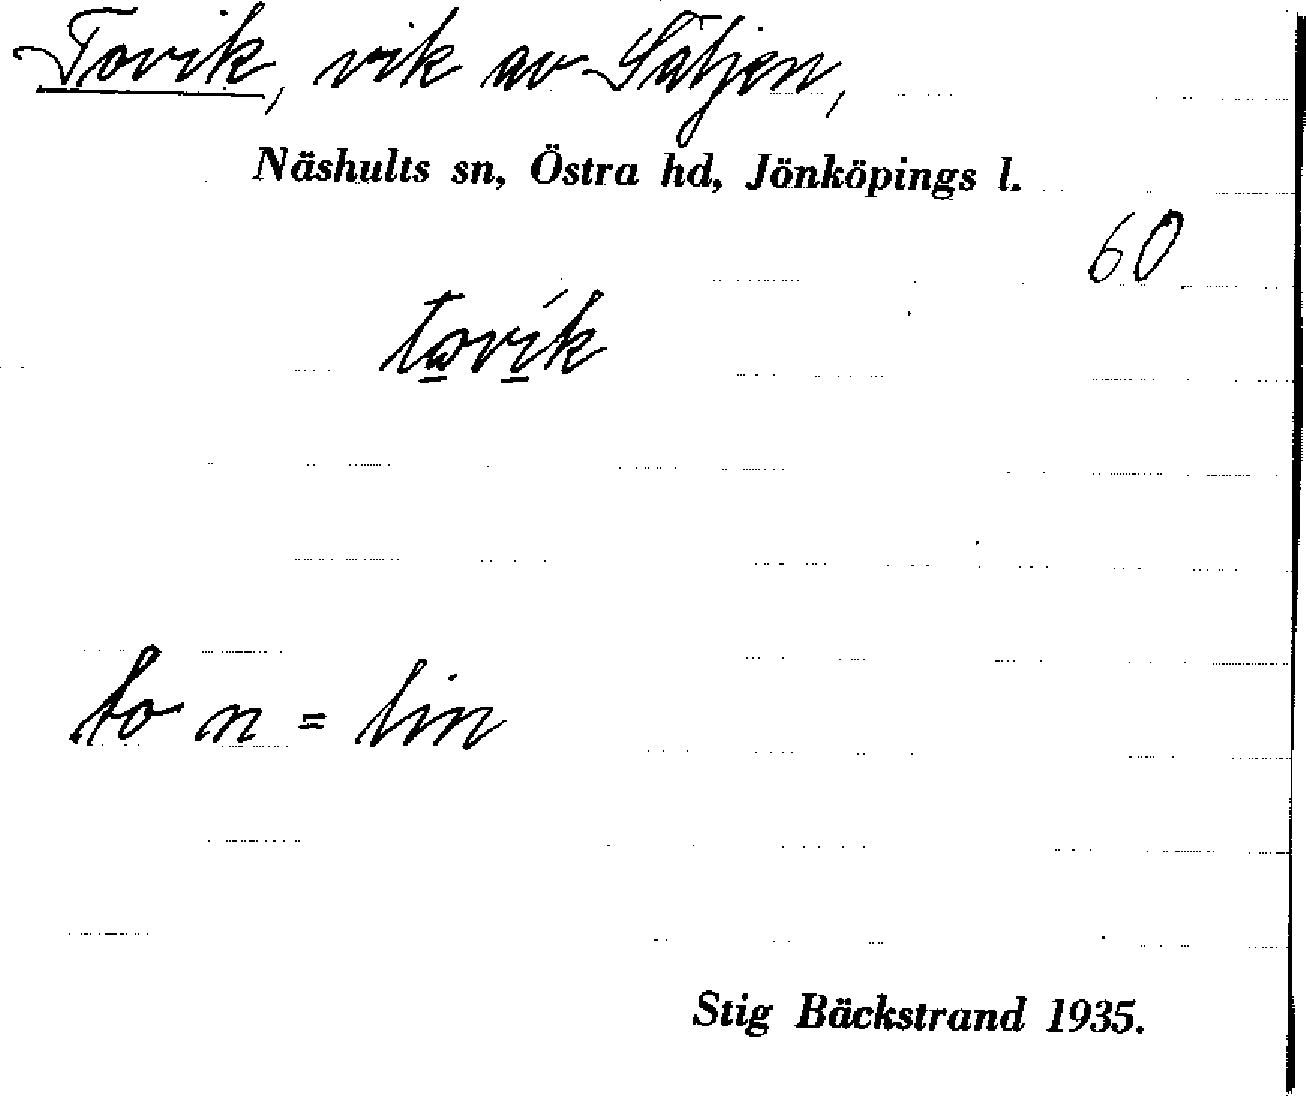 Tovik, vik av Säljen,
Näshults sn, Östra hd, Jönköpings l.
60
tωvík
to n = lin
Stig Bäckstrand 1935.